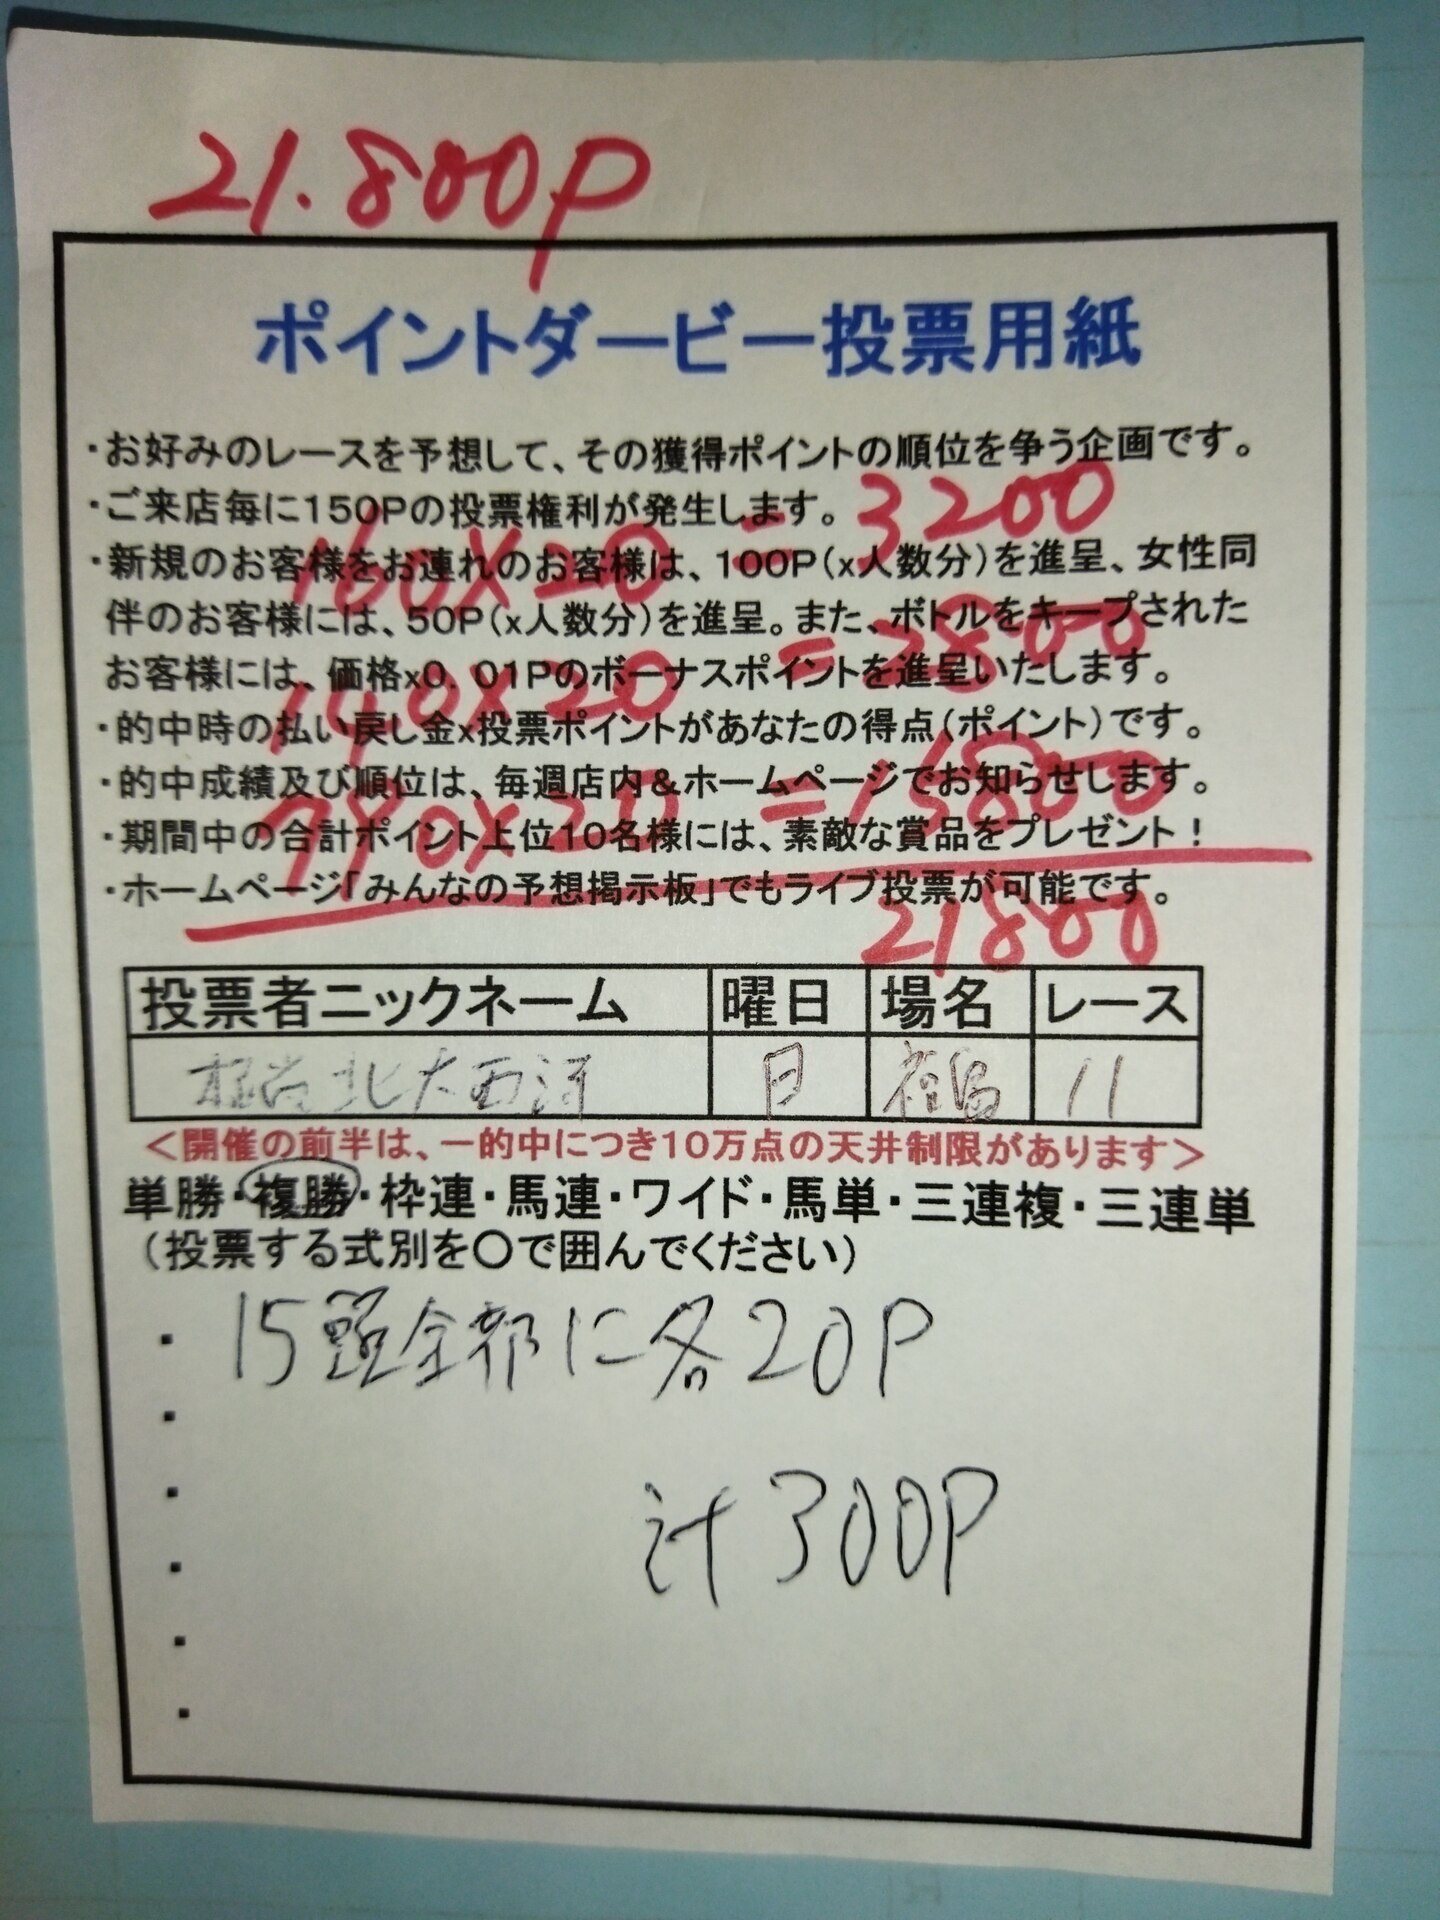 21.800P
ポイントダービー投票用紙
・お好みのレースを予想して、その獲得ポイントの順位を争う企画です。
・ご来店毎に150Pの投票権利が発生します。
160×20 = 3200
・新規のお客様をお連れのお客様は、100P(x人数分)を進呈、女性同
伴のお客様には、50P(x人数分)を進呈。また、ボトルをキープされた
お客様には、価格x0.01Pのボーナスポイントを進呈いたします。
140×20 = 2800
・的中時の払い戻し金x投票ポイントがあなたの得点(ポイント)です。
・的中成績及び順位は、毎週店内&ホームページでお知らせします。
790×20 = 15800
・期間中の合計ポイント上位10名様には、素敵な賞品をプレゼント!
・ホームページ「みんなの予想掲示板」でもライブ投票が可能です。
21800
投票者ニックネーム 曜日 場名 レース
北大西洋 日 福島 11
<開催の前半は、一的中につき10万点の天井制限があります>
単勝・複勝・枠連・馬連・ワイド・馬単・三連複・三連単
(投票する式別を〇で囲んでください)
・15頭全部に各20P
・
・計300P
・
・
・